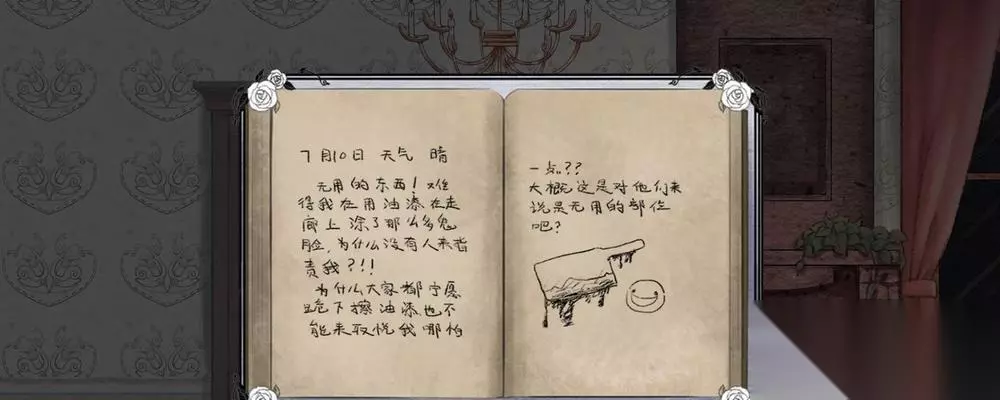 7月10日 天气 晴
无用的东西！难
得我在用油漆在走
廊上涂了那么多鬼
脸，为什么没有人来指
责我？!!
为什么大家都宁愿
跪下擦油漆也不
能来取悦我哪怕
一点??
大概这是对他们来
说是无用的部位
吧?